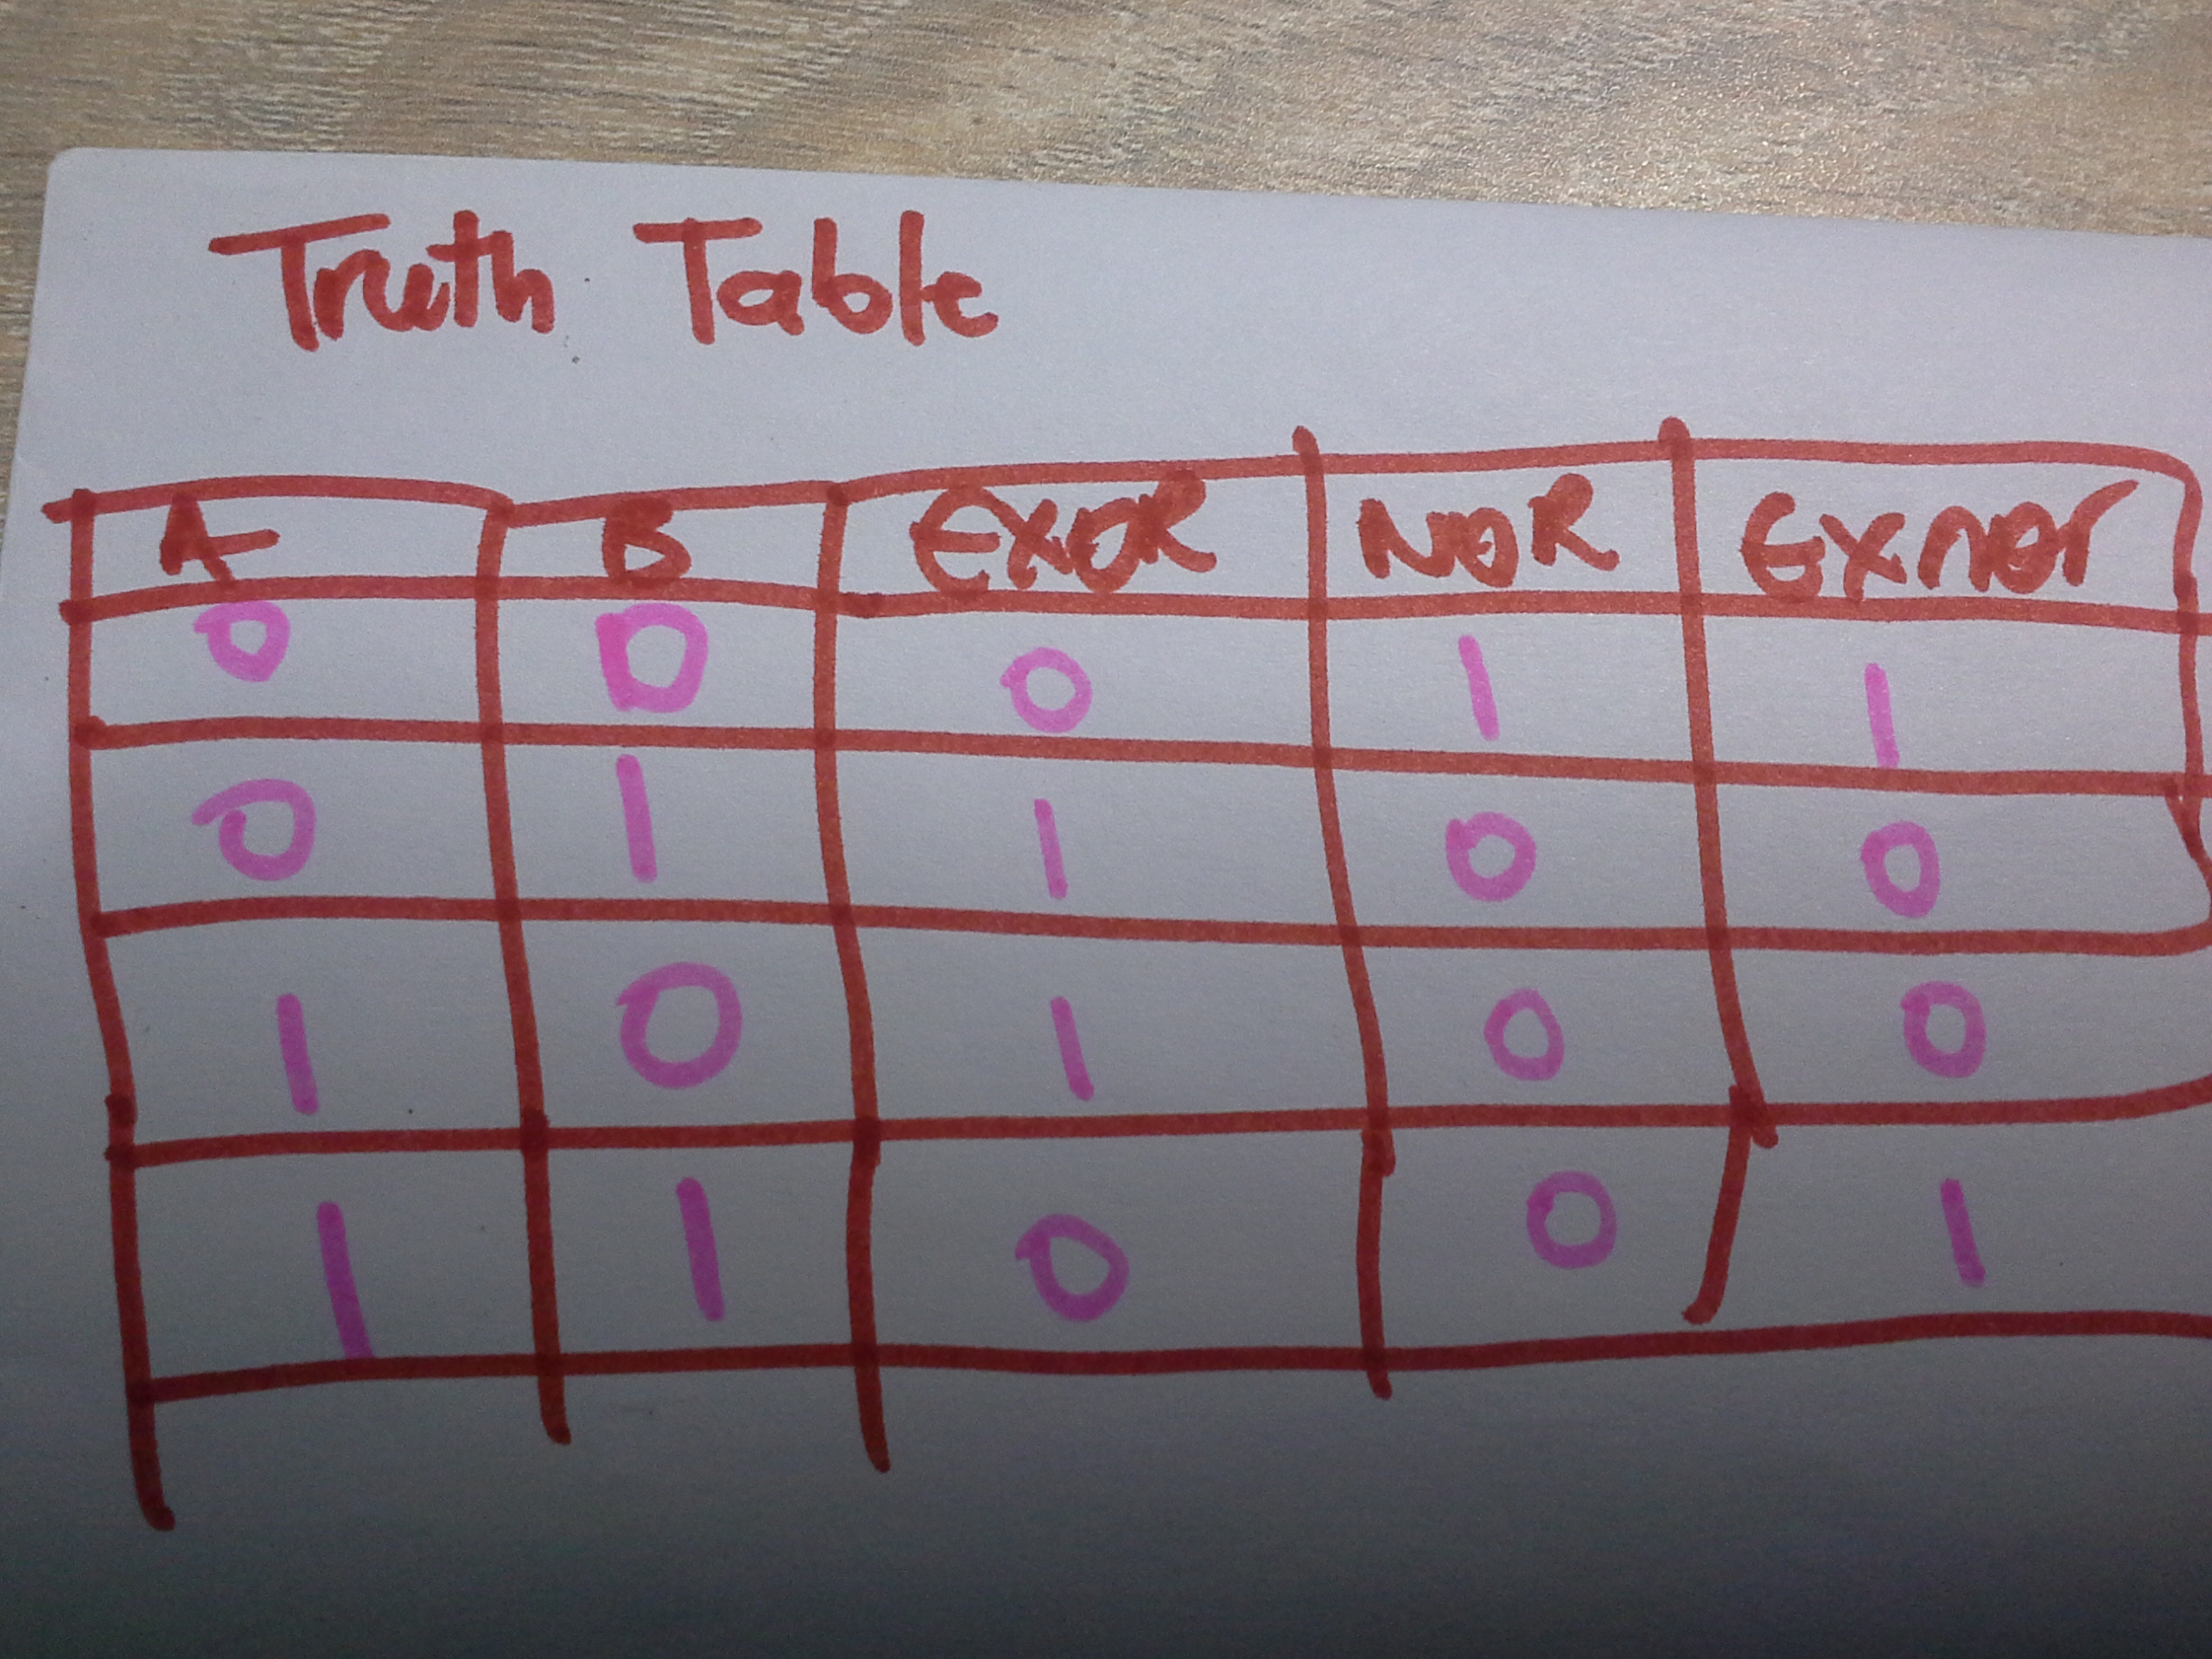 Truth Table
A B EXOR NOR EXNOr
0 0 0 1 1
0 1 1 0 0
1 0 1 0 0
1 1 0 0 1